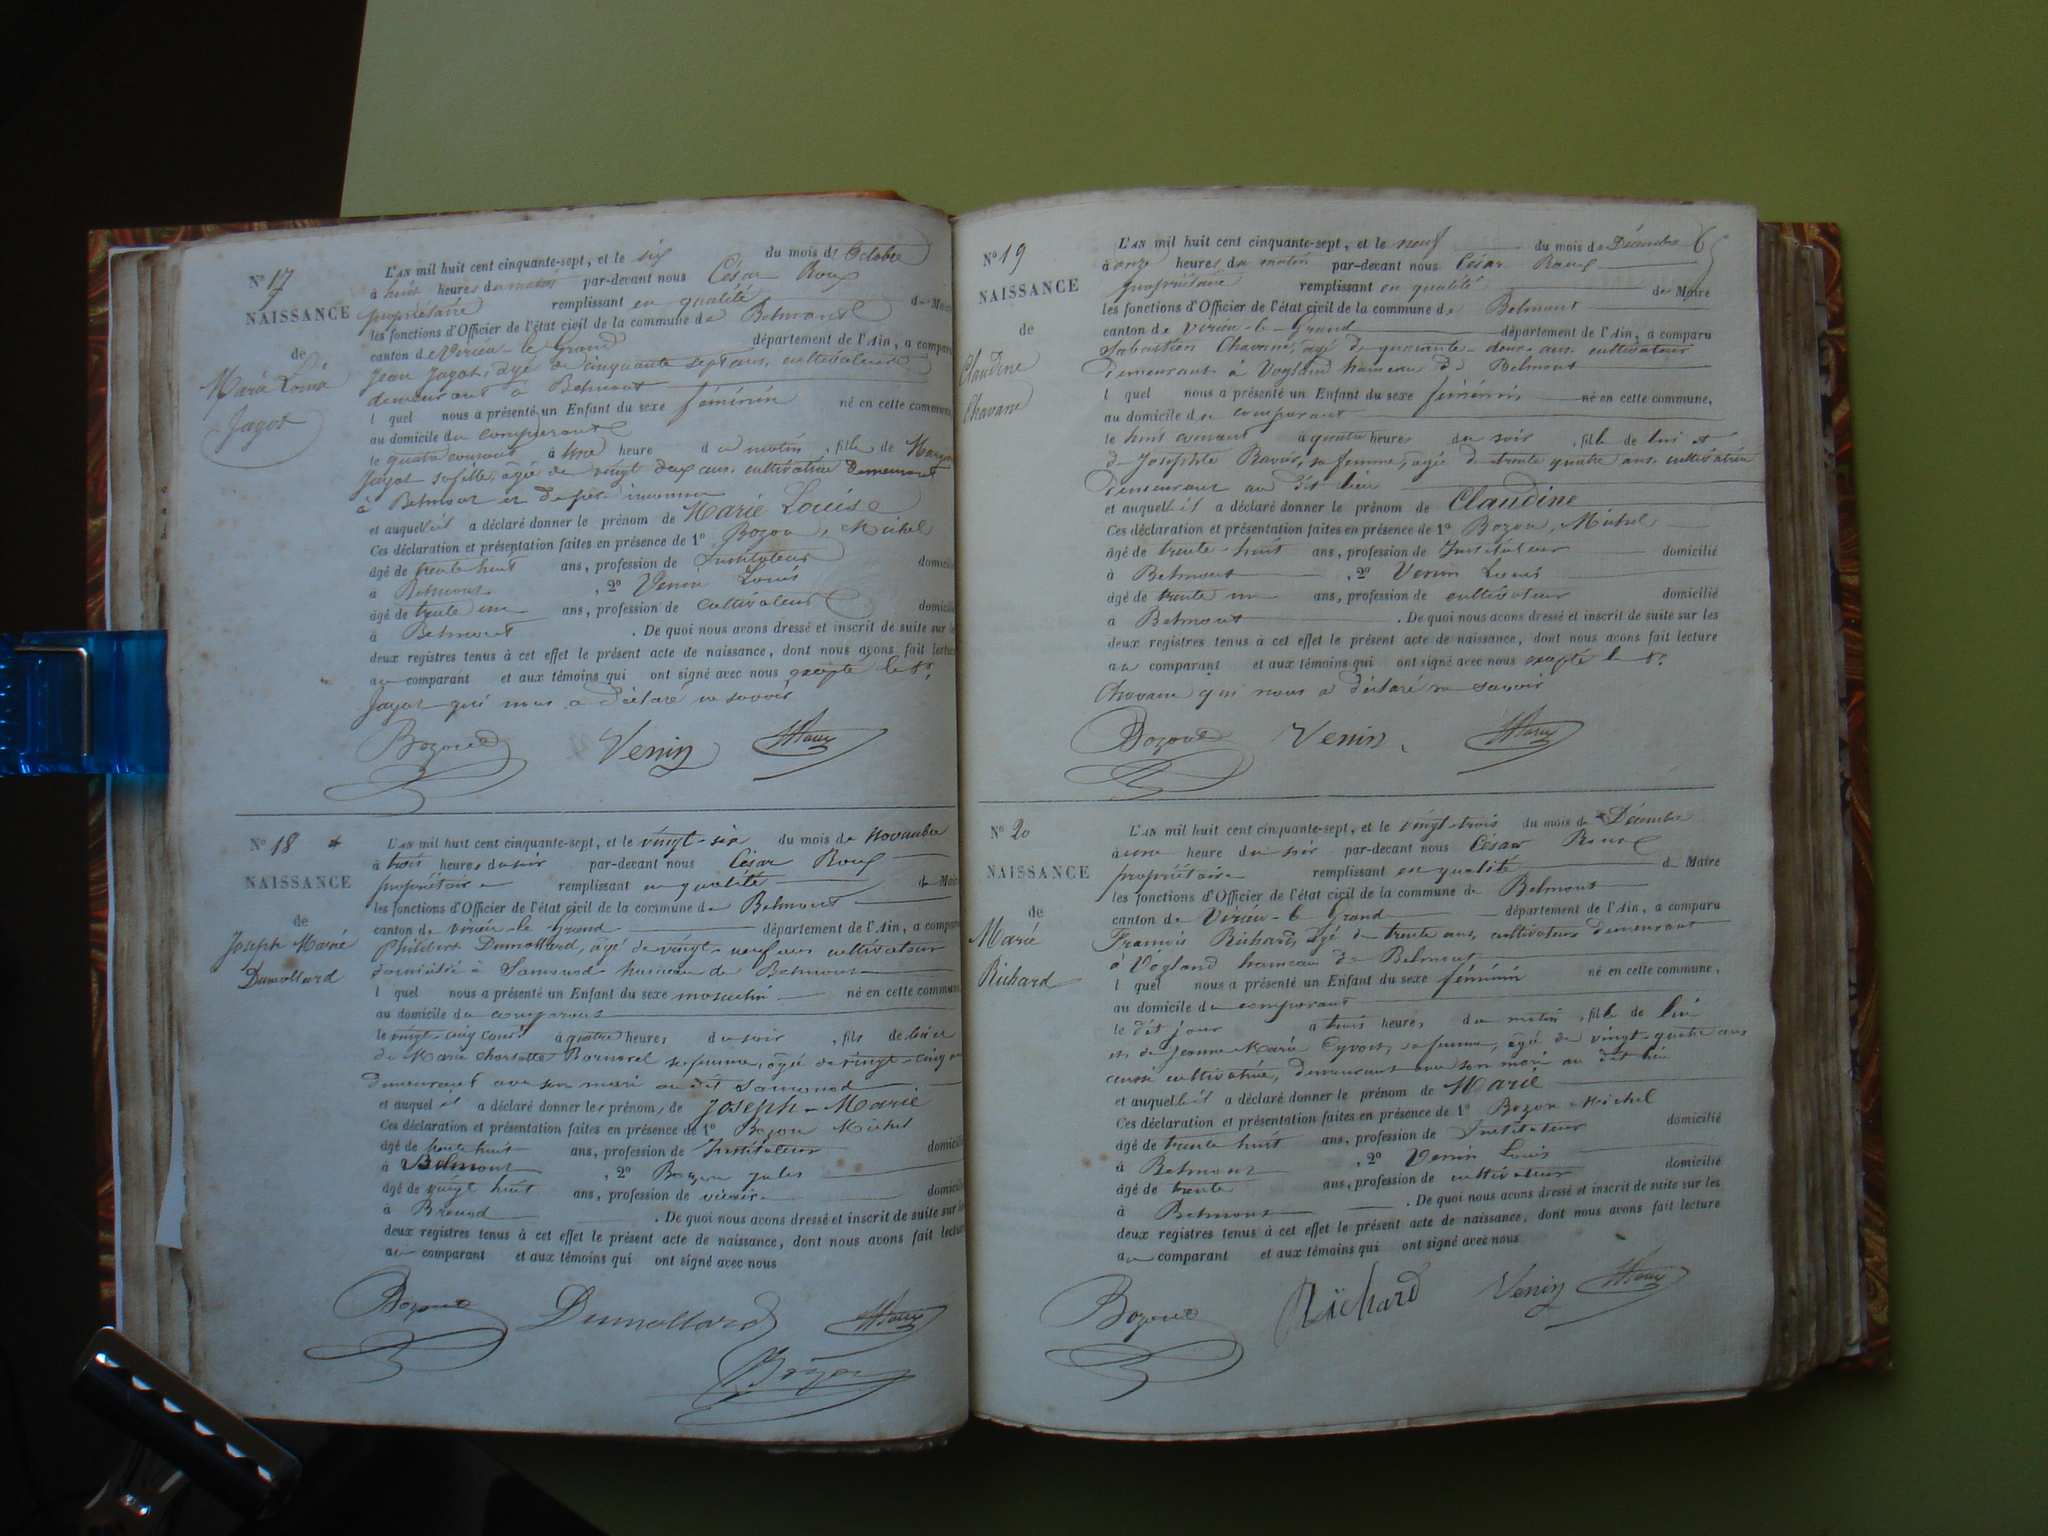 N° 17
NAISSANCE
de
Marie Louise
Jagot
L'AN mil huit cent cinquante-sept, et le six du mois de Octobre
à huit heures du matin par-devant nous César Roux
propriétaire remplissant en qualité de Maire
les fonctions d'Officier de l'état civil de la commune de Belmont
canton de Virieu-le-Grand département de l'Ain, a comparu
Jean Jagot, âgé de cinquante sept ans, cultivateur
demeurant à Belmont
lequel nous a présenté un Enfant du sexe féminin né en cette commune,
au domicile du comparant
le quatre courant à une heure du matin, fille de
Jagot sa fille, âgée de vingt deux ans, cultivatrice demeurant
à Belmont et de père inconnu
et auquel il a déclaré donner le prénom de Marie Louise
Ces déclaration et présentation faites en présence de 1° Bozon, Michel
âgé de trente huit ans, profession de Instituteur domicilié
à Belmont , 2° Venin Louis
âgé de trente un ans, profession de cultivateur domicilié
à Belmont . De quoi nous avons dressé et inscrit de suite sur les
deux registres tenus à cet effet le présent acte de naissance, dont nous avons fait lecture
au comparant et aux témoins qui ont signé avec nous excepté le Sr
Jagot qui nous a déclaré ne savoir
Bozon Venin Roux
N° 18
NAISSANCE
de
Joseph Marie
Dumollard
L'AN mil huit cent cinquante-sept, et le vingt-six du mois de Novembre
à trois heures du soir par-devant nous César Roux
propriétaire remplissant en qualité de Maire
les fonctions d'Officier de l'état civil de la commune de Belmont
canton de Virieu-le-Grand département de l'Ain, a comparu
Philibert Dumollard, âgé de vingt-neuf ans cultivateur
domicilié à Samonod hameau de Belmont
lequel nous a présenté un Enfant du sexe masculin né en cette commune
au domicile du comparant
le vingt-cinq cour à quatre heures du soir, fils de lui et
de Marie Charlotte sa femme, âgée de vingt-cinq ans
demeurant avec son mari au dit Samonod
et auquel il a déclaré donner les prénoms de Joseph-Marie
Ces déclaration et présentation faites en présence de 1° Bozon Michel
âgé de trente huit ans, profession de Instituteur domicilié
à Belmont , 2° Bozon Jules
âgé de vingt huit ans, profession de domicilié
à Brenod . De quoi nous avons dressé et inscrit de suite sur les
deux registres tenus à cet effet le présent acte de naissance, dont nous avons fait lecture
au comparant et aux témoins qui ont signé avec nous
Bozon Dumollard Roux
Bozon
N° 19
NAISSANCE
de
Claudine
Chavane
L'AN mil huit cent cinquante-sept, et le neuf du mois de Décembre
à onze heures du matin par-devant nous César Roux
propriétaire remplissant en qualité de Maire
les fonctions d'Officier de l'état civil de la commune de Belmont
canton de Virieu-le-Grand département de l'Ain, a comparu
Sébastien Chavane, âgé de quarante-deux ans cultivateur
demeurant à Vogland hameau de Belmont
lequel nous a présenté un Enfant du sexe féminin né en cette commune,
au domicile du comparant
le huit courant à quatre heures du soir, fille de lui et
de Josephte sa femme, âgée de trente quatre ans cultivatrice
demeurant au dit lieu
et auquel il a déclaré donner le prénom de Claudine
Ces déclaration et présentation faites en présence de 1° Bozon, Michel
âgé de trente-huit ans, profession de Instituteur domicilié
à Belmont , 2° Venin Louis
âgé de trente un ans, profession de cultivateur domicilié
à Belmont . De quoi nous avons dressé et inscrit de suite sur les
deux registres tenus à cet effet le présent acte de naissance, dont nous avons fait lecture
au comparant et aux témoins qui ont signé avec nous excepté le Sr
Chavane qui nous a déclaré ne savoir
Bozon Venin Roux
N° 20
NAISSANCE
de
Marie
Richard
L'AN mil huit cent cinquante-sept, et le vingt-trois du mois de Décembre
à une heure du soir par-devant nous César Roux
propriétaire remplissant en qualité de Maire
les fonctions d'Officier de l'état civil de la commune de Belmont
canton de Virieu-le-Grand département de l'Ain, a comparu
François Richard, âgé de trente ans, cultivateur demeurant
à Vogland hameau de Belmont
lequel nous a présenté un Enfant du sexe féminin né en cette commune,
au domicile du comparant
le dit jour à trois heures du matin, fille de lui
et de Jeanne Marie sa femme, âgée de vingt-quatre ans
aussi cultivatrice, demeurant avec son mari au dit lieu
et auquel il a déclaré donner le prénom de Marie
Ces déclaration et présentation faites en présence de 1° Bozon Michel
âgé de trente huit ans, profession de Instituteur domicilié
à Belmont , 2° Venin Louis
âgé de trente ans, profession de cultivateur domicilié
à Belmont . De quoi nous avons dressé et inscrit de suite sur les
deux registres tenus à cet effet le présent acte de naissance, dont nous avons fait lecture
au comparant et aux témoins qui ont signé avec nous
Bozon Richard Venin Roux